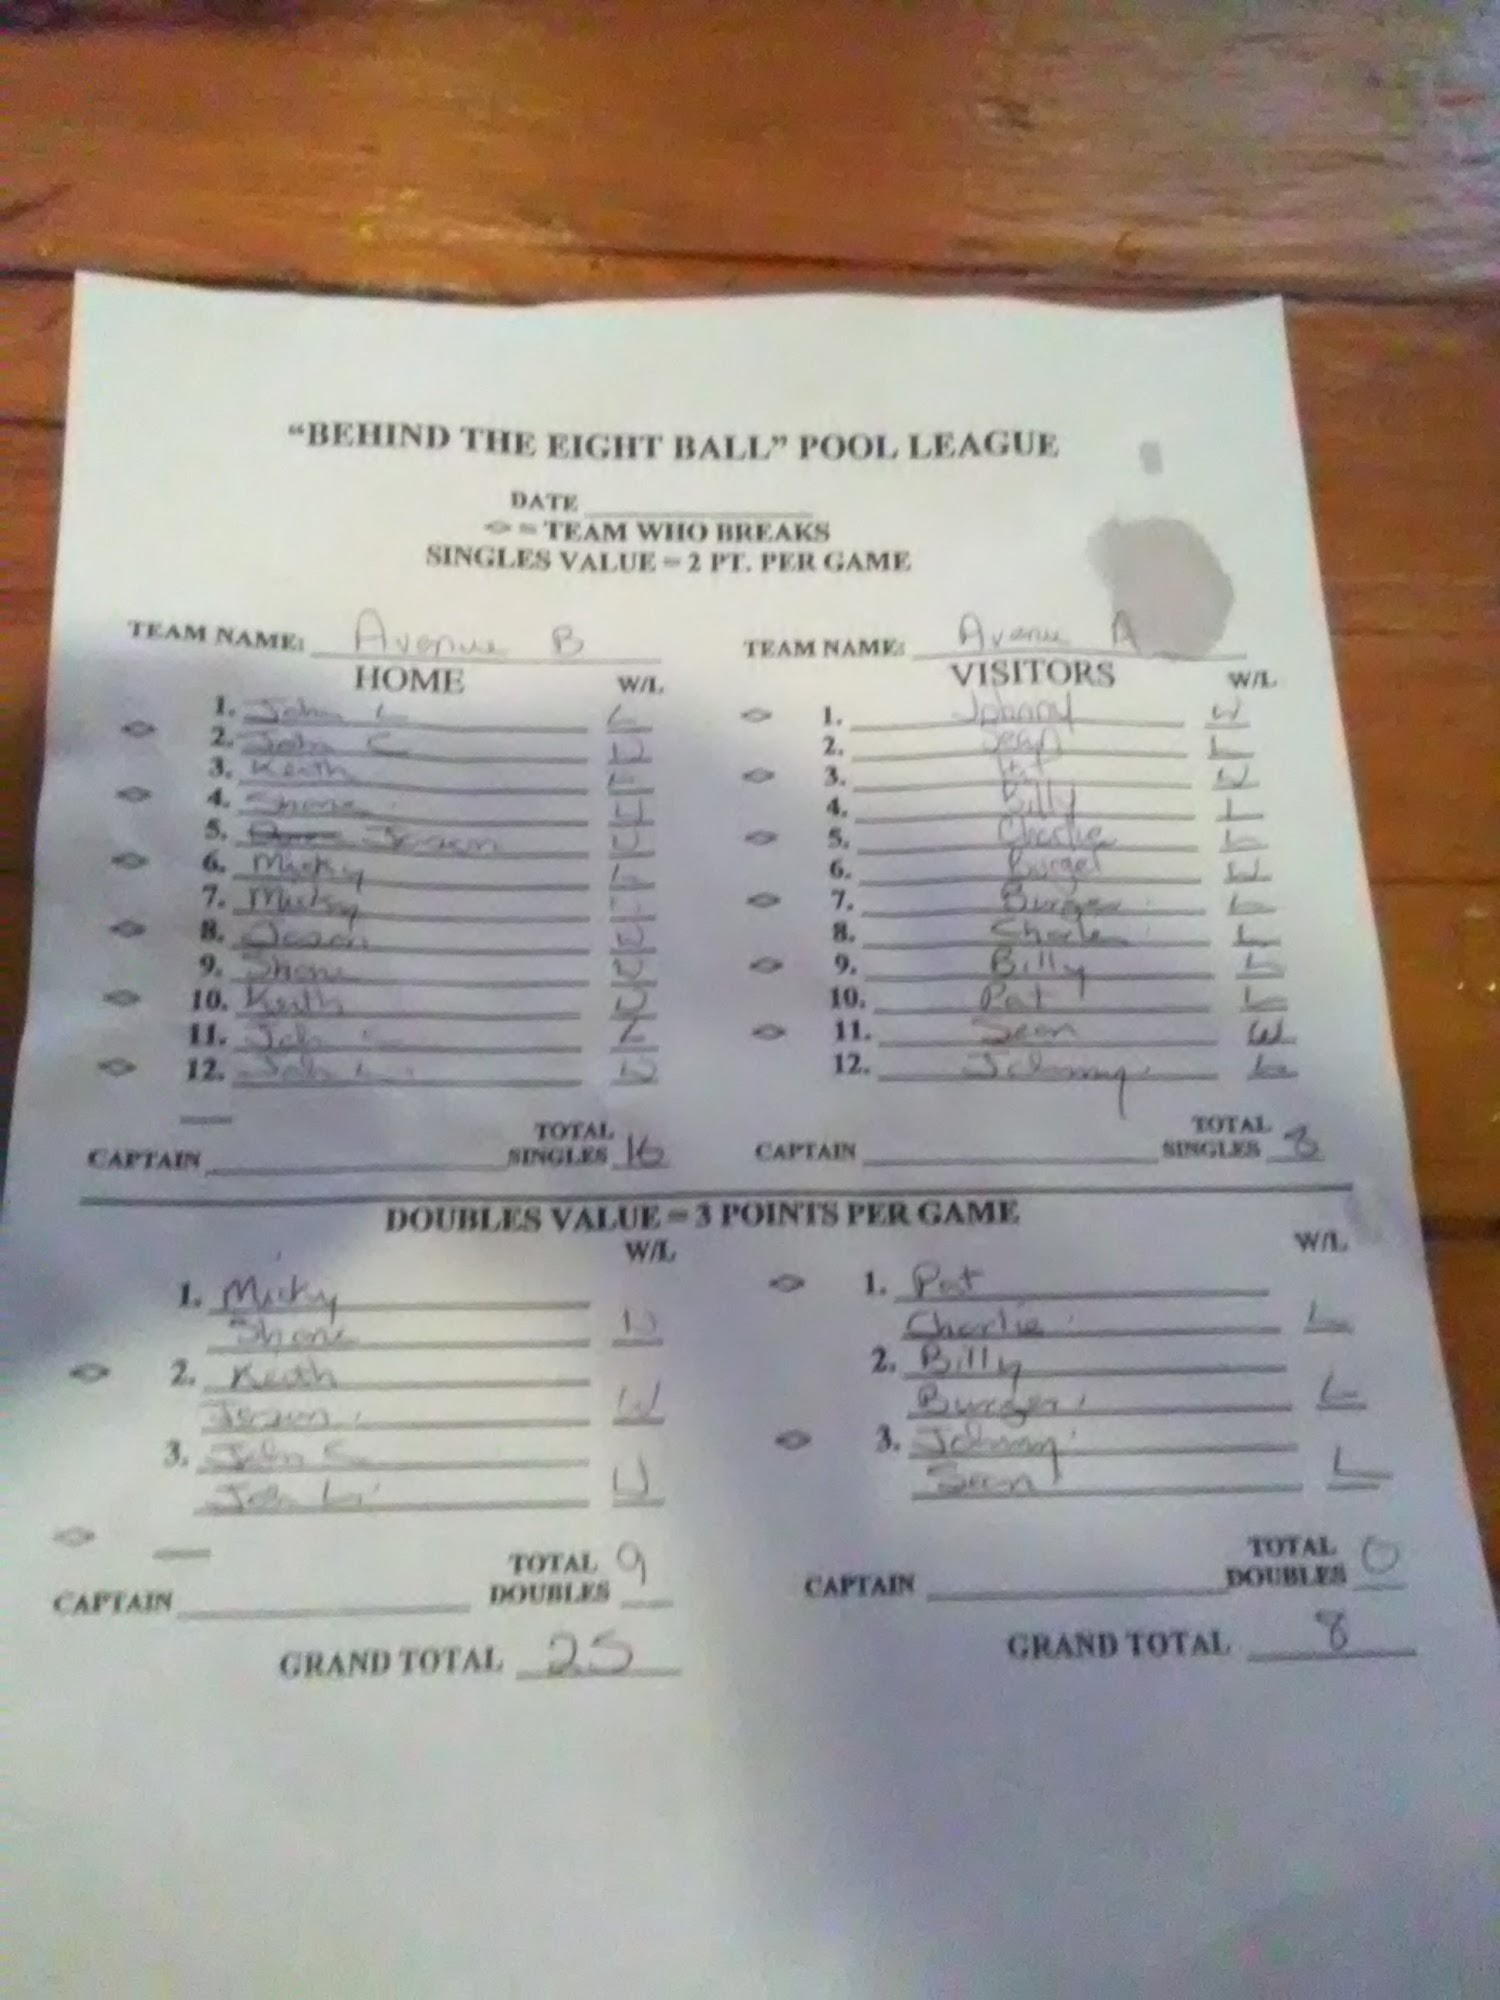 "BEHIND THE EIGHT BALL" POOL LEAGUE
DATE
= TEAM WHO BREAKS
SINGLES VALUE = 2 PT. PER GAME
TEAM NAME: Avenue B TEAM NAME: Avenue A
HOME W/L VISITORS W/L
1. John L L 1. Johnny W
2. John C W 2. Sean L
3. Keith L 3. Pat W
4. Shane W 4. Billy L
5. Jerson W 5. Charlie L
6. Micky L 6. Burger W
7. Micky 7. Burger L
8. W 8. Charlie L
9. Shane W 9. Billy L
10. Keith W 10. Pat L
11. John L 11. Sean W
12. John L. W 12. Johnny L
CAPTAIN TOTAL SINGLES 16 CAPTAIN TOTAL SINGLES 8
DOUBLES VALUE = 3 POINTS PER GAME
W/L W/L
1. Micky 1. Pat
Shane W Charlie L
2. Keith 2. Billy
Jerson W Burger L
3. John C 3. Johnny
John L. W Sean L
CAPTAIN TOTAL DOUBLES 9 CAPTAIN TOTAL DOUBLES 0
GRAND TOTAL 25 GRAND TOTAL 8